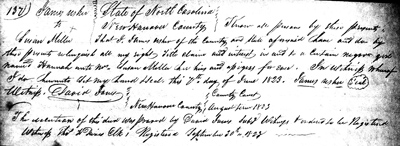 187) James Usher State of North Carolina
to New Hanover County, Know all persons by these presents
Susan Miller That I, James Usher of the County and State aforesaid have and do by
these presents relinquish all my right, title claim and interest, in and to a certain negroe girl
named Hannah unto Mrs. Susan Miller her heirs and assigns for ever. In Witness Whereof
I do hereunto set my hand & Seal this 7th day of June 1823. James Usher Seal
Witness. David Jones County Court
New Hanover County August Term 1823
The execution of this deed was proved by David Jones Subs Witness & ordered to be Registered
Witness Clk Registered September 30th 1823